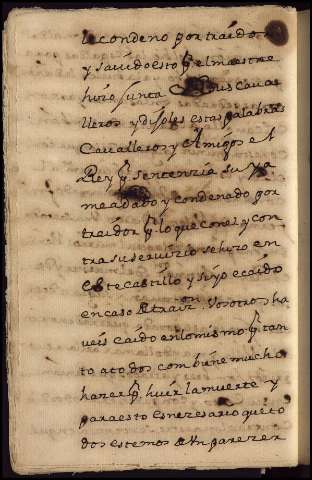 le condeno por traidor
y savido esto q̃ el maestre
hizo junta de sus Cava
lleros y dijoles estas palabras
Cavalleros y Amigos el
Rey q̃ sentenzia su ya
me a dado y condenado por
traidor q̃ lo que con el y con
tra su servizio se hizo en
Este castillo y si yo e caido
en caso de traizon. Vosotros ha
veis caido en lo mismo q̃ tan
to a todos combiene mucho
hazer q̃ huir la muerte y
para esto es nezesario que to
dos estemos de Un parezer